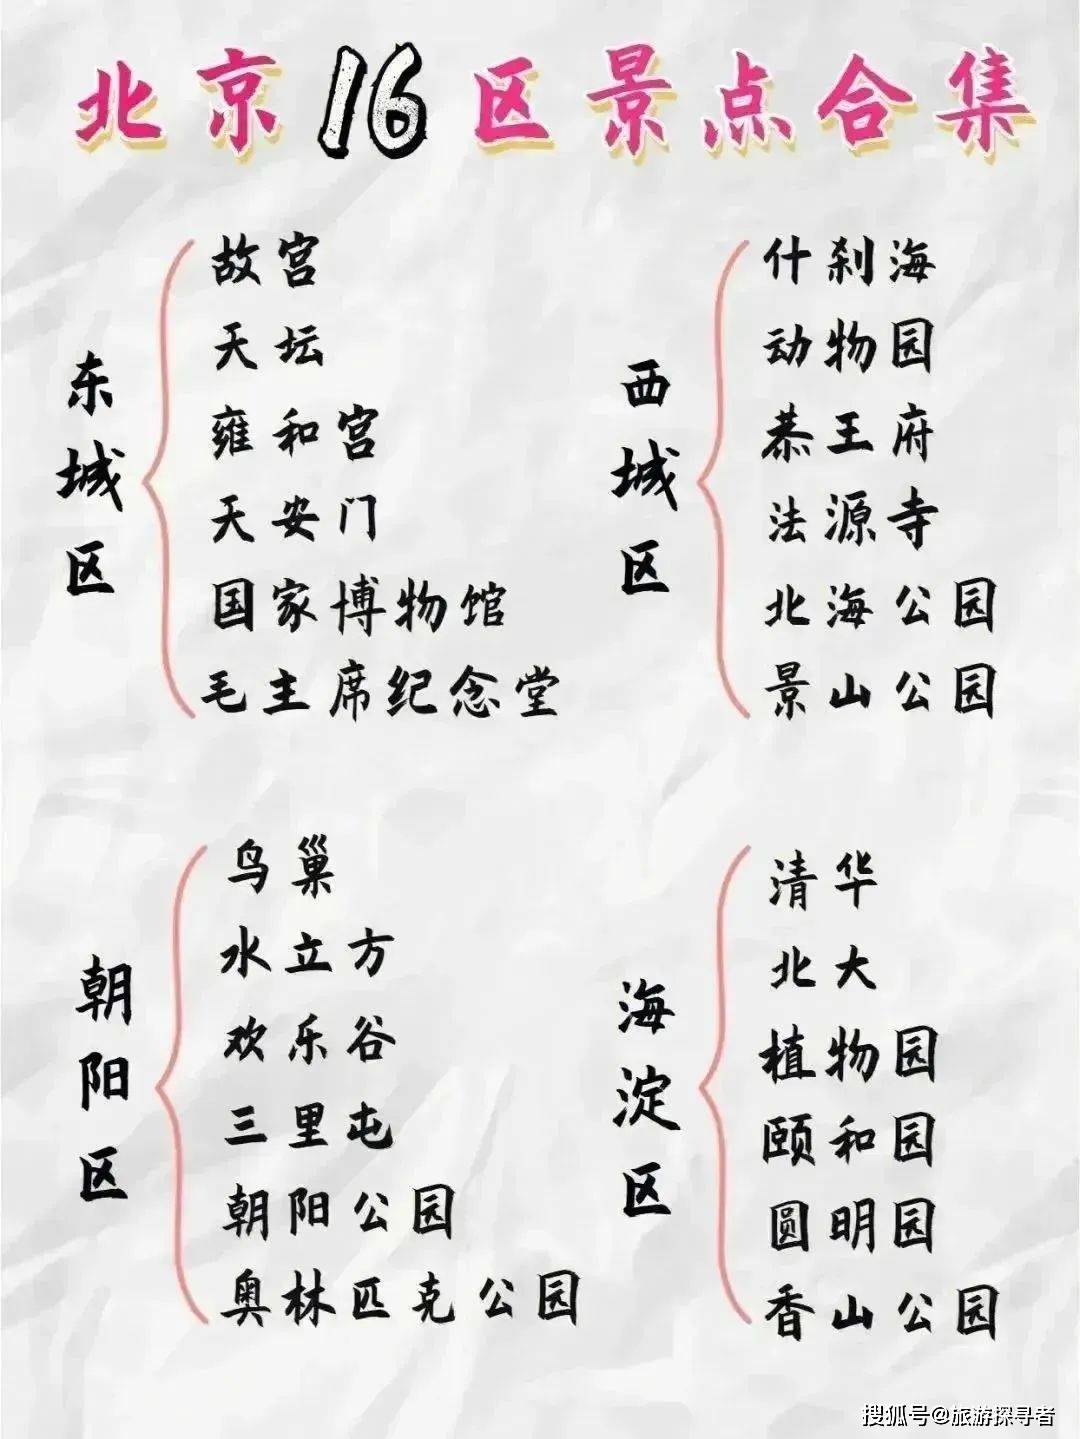 北京16区景点合集
东城区
故宫
天坛
雍和宫
天安门
国家博物馆
毛主席纪念堂
西城区
什刹海
动物园
恭王府
法源寺
北海公园
景山公园
朝阳区
鸟巢
水立方
欢乐谷
三里屯
朝阳公园
奥林匹克公园
海淀区
清华
北大
植物园
颐和园
圆明园
香山公园
搜狐号@旅游探寻者